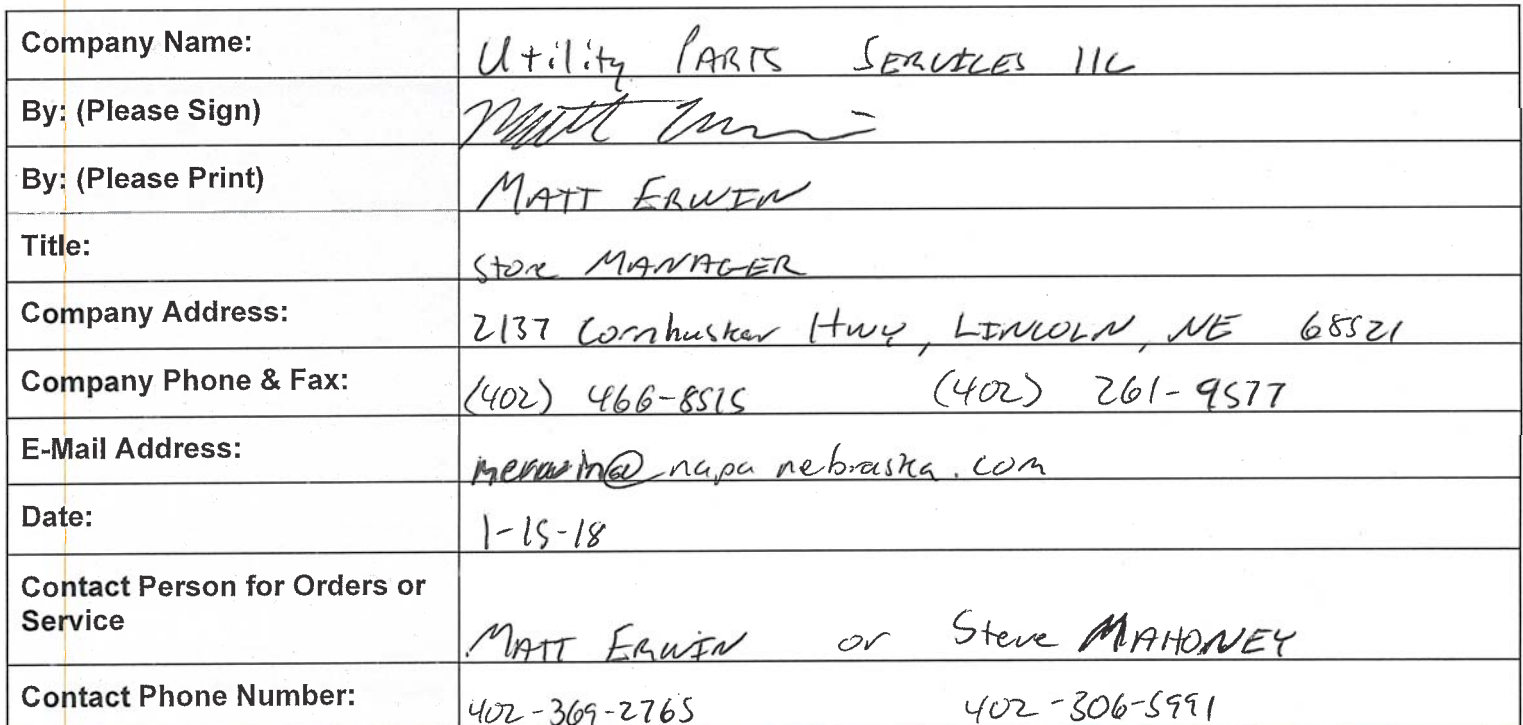 Company Name: Utility PARTS SERVICES llC
By: (Please Sign)
By: (Please Print) MATT ERWIN
Title: Store MANAGER
Company Address: 2137 Cornhusker Hwy, LINCOLN, NE 68521
Company Phone & Fax: (402) 466-8515 (402) 261-9577
E-Mail Address: merwin@napanebraska.com
Date: 1-15-18
Contact Person for Orders or
Service MATT ERWIN or Steve MAHONEY
Contact Phone Number: 402-369-2765 402-306-5991